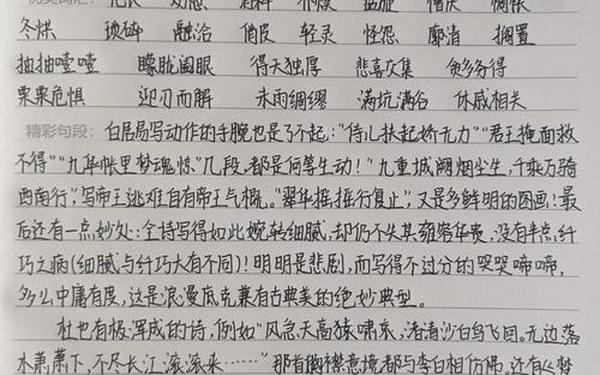 冬烘 琐碎 融洽 俏皮 轻灵 怪怨 廓清 搁置
抽抽噎噎 朦胧阖眼 得天独厚 悲喜交集 贪多务得
栗栗危惧 迎刃而解 未雨绸缪 满坑满谷 休戚相关
精彩句段：白居易写动作的手腕也是了不起："侍儿扶起娇无力""君王掩面救
不得""九华帐里梦魂惊"几段，都是何等生动！"九重城阙烟尘生，千乘万骑
西南行"，写帝王逃难自有帝王气概。"翠华摇摇行复止"，又是多鲜明的图画！最
后还有一点妙处：全诗写得如此婉转细腻，却仍不失其雍容华贵，没有半点纤
巧之病（细腻与纤巧大有不同）！明明是悲剧，而写得不过分的哭哭啼啼，
多么中庸有度，这是浪漫底克兼有古典美的绝妙典型。
杜也有极浑成的诗，例如"风急天高猿啸哀，渚清沙白鸟飞回。无边落
木萧萧下，不尽长江滚滚来……"那首胸襟意境都与李白相仿佛。还有《梦